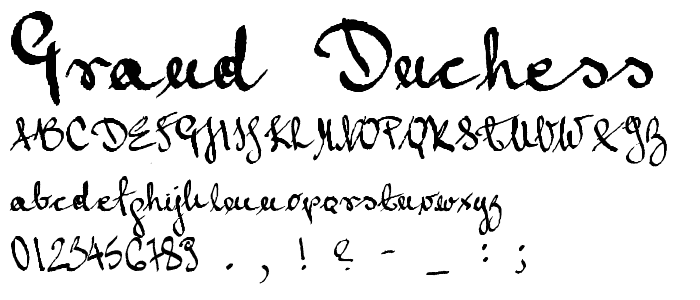 Grand Duchess
ABCDEFGHIJKLMNOPQRSTUVWXYZ
abcdefghijklmnopqrstuvwxyz
0123456789 . , ! ? - _ : ;